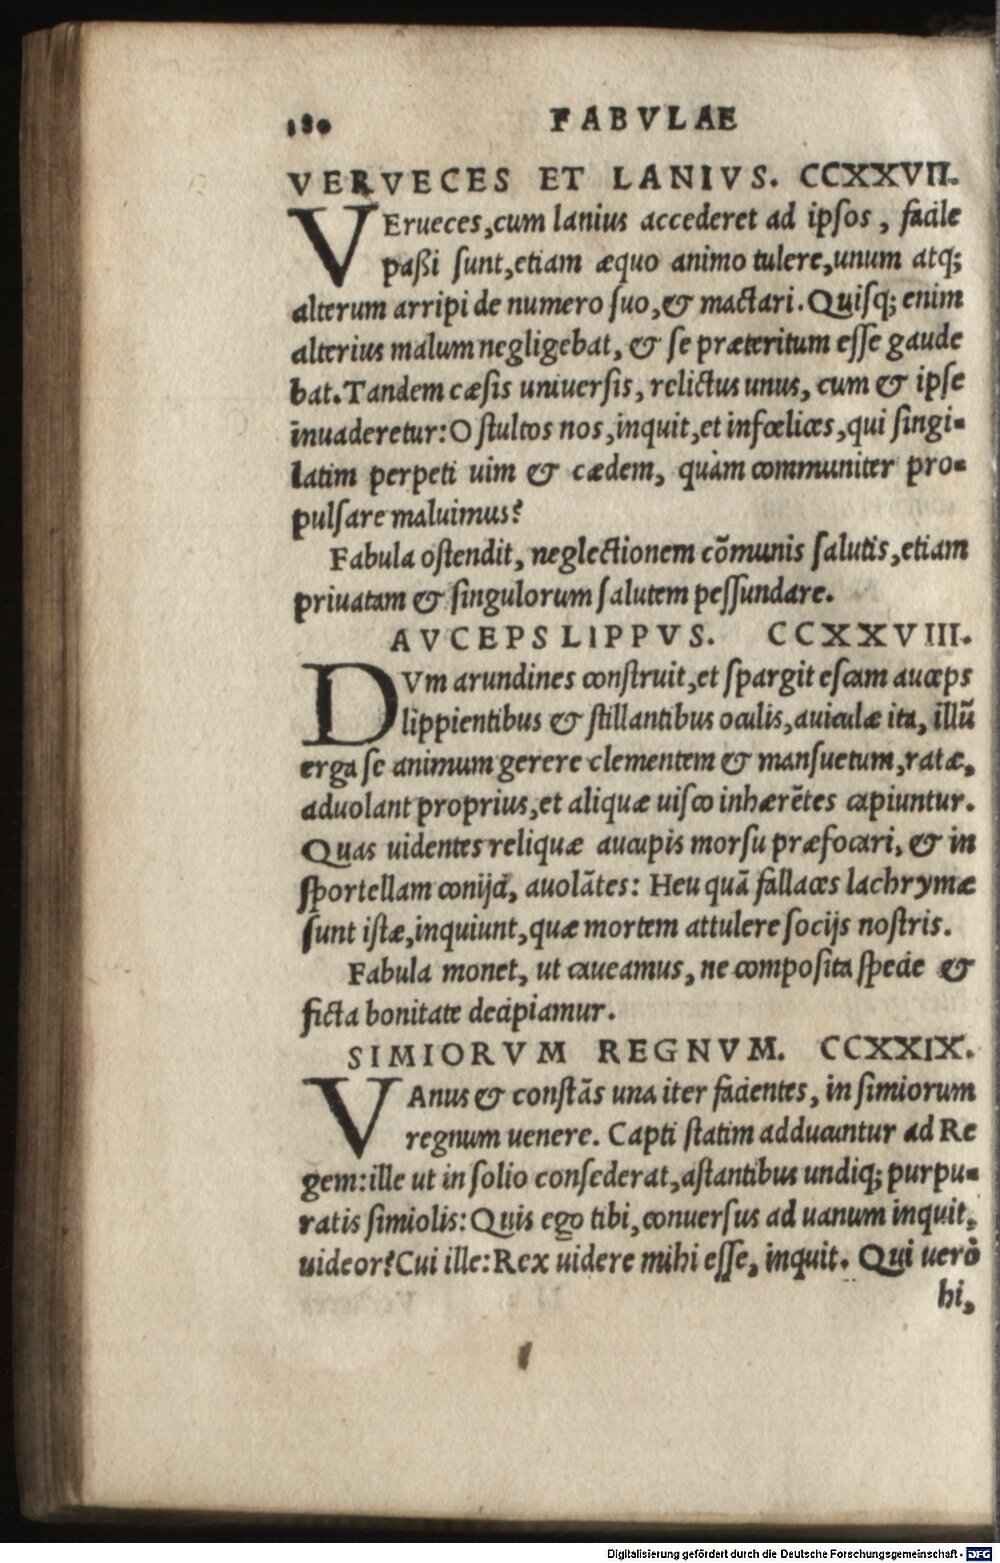 180 FABVLAE
VERVECES ET LANIVS. CCXXVII.
VErueces,cum lanius accederet ad ipſos, facile
paßi ſunt,etiam æquo animo tulere,unum atq;
alterum arripi de numero ſuo,& mactari. Quiſq; enim
alterius malum negligebat, & ſe præteritum eſſe gaude
bat. Tandem cæſis uniuerſis, relictus unus, cum & ipſe
inuaderetur: O ſtultos nos,inquit,et infœlices,qui ſingi-
latim perpeti uim & cædem, quàm communiter pro-
pulſare maluimus?
Fabula oſtendit, neglectionem cõmunis ſalutis,etiam
priuatam & ſingulorum ſalutem peſſundare.
AVCEPS LIPPVS. CCXXVIII.
DVm arundines conſtruit,et ſpargit eſcam auceps
lippientibus & ſtillantibus oculis,auiculæ ita, illũ
erga ſe animum gerere clementem & manſuetum,ratæ,
aduolant proprius,et aliquæ uiſco inhærẽtes capiuntur.
Quas uidentes reliquæ aucupis morſu præfocari, & in
ſportellam conijci, auolãtes: Heu quã fallaces lachrymæ
ſunt iſtæ,inquiunt,quæ mortem attulere ſocijs noſtris.
Fabula monet, ut caueamus, ne compoſita ſpecie &
ficta bonitate decipiamur.
SIMIORVM REGNVM. CCXXIX.
VAnus & conſtãs una iter facientes, in ſimiorum
regnum uenere. Capti ſtatim adducuntur ad Re
gem: ille ut in ſolio conſederat,aſtantibus undiq; purpu-
ratis ſimiolis: Quis ego tibi,conuerſus ad uanum inquit,
uideor? Cui ille: Rex uidere mihi eſſe, inquit. Qui uerò
hi,
Digitalisierung gefördert durch die Deutsche Forschungsgemeinschaft - DFG